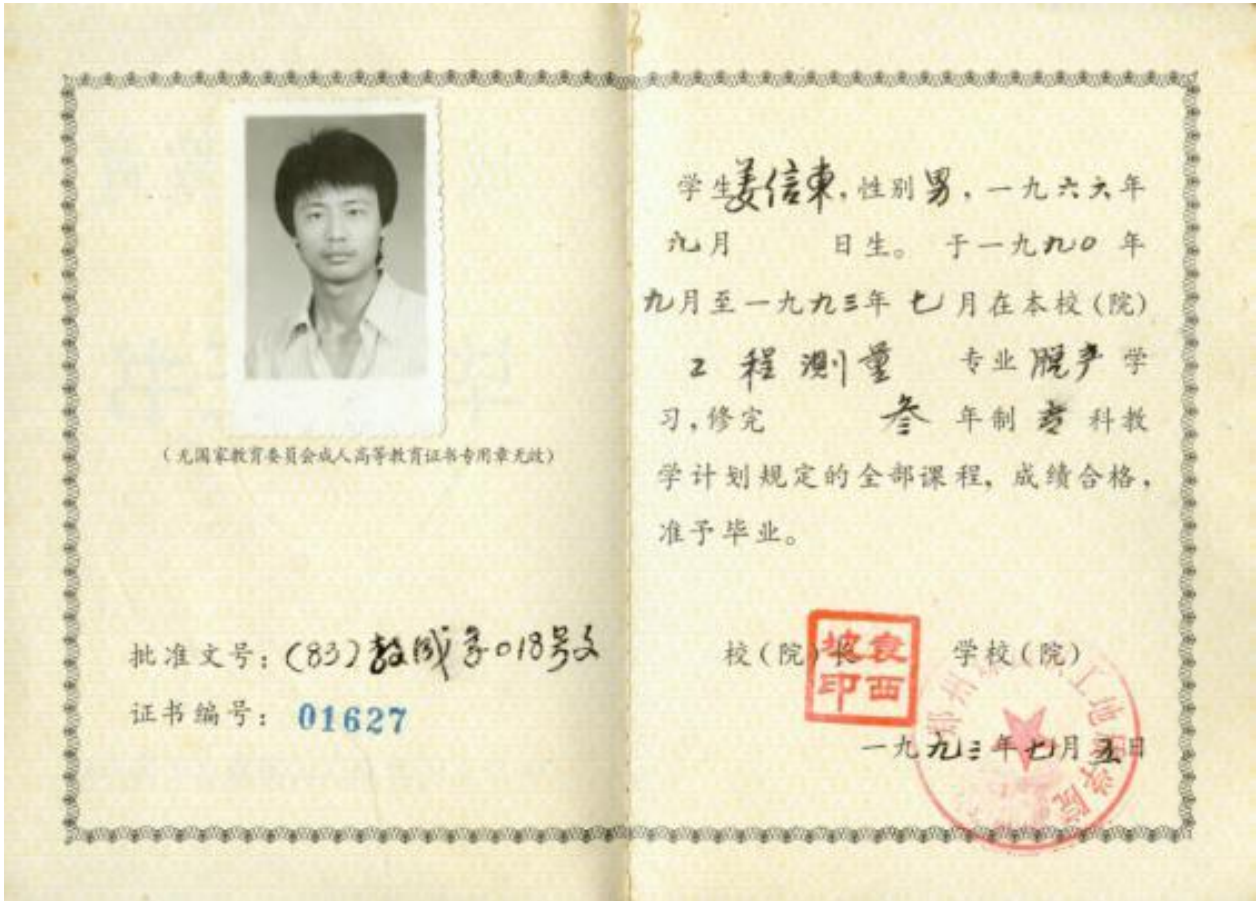 (无国家教育委员会成人高等教育证书专用章无效)
批准文号：(83)教成字018号文
证书编号：01627
学生姜信東，性别男，一九六六年
九月 日生。于一九九〇年
九月至一九九三年七月在本校(院)
工程测量 专业脱产学
习，修完 叁年制专科教
学计划规定的全部课程，成绩合格，
准予毕业。
校(院)长 学校(院)
袁西坡印
一九九三年七月五日
郑州 职工地 学院